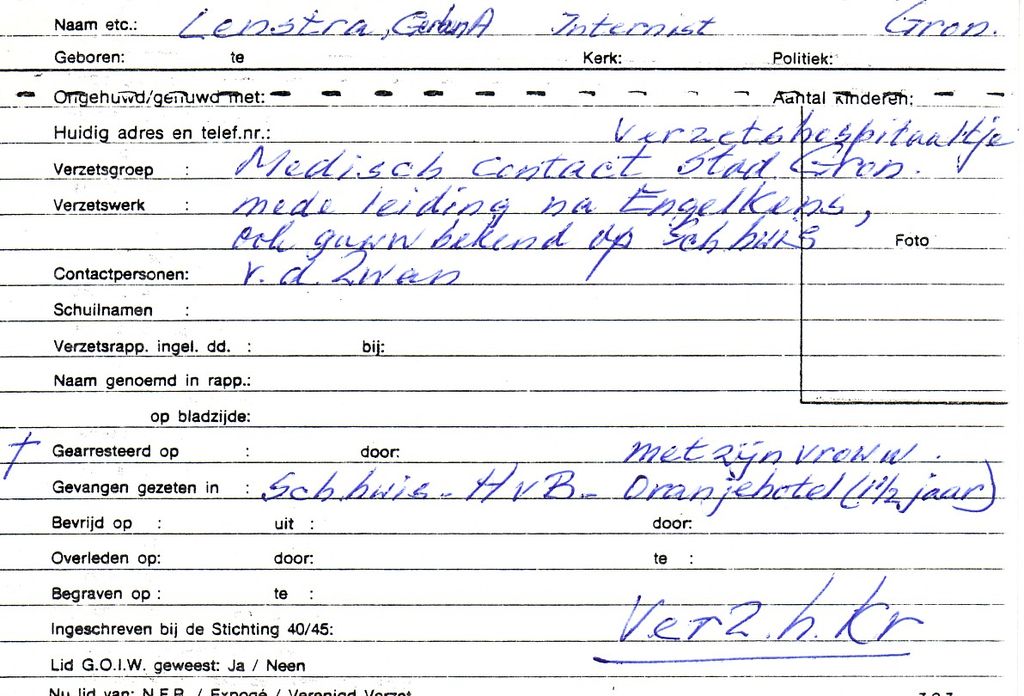 Naam etc.: Lenstra, Internist Gron.
Geboren: te Kerk: Politiek:
Ongehuwd/gehuwd met: Aantal kinderen:
Huidig adres en telef.nr.: Verzetshospitaaltje
Verzetsgroep : Medisch Contact Stad Gron.
Verzetswerk : mede leiding na Engelkens,
ook gauw bekend op Schhuis Foto
Contactpersonen: v.d. Zwan
Schuilnamen :
Verzetsrapp. ingel. dd. : bij:
Naam genoemd in rapp.:
op bladzijde:
† Gearresteerd op : door: met zijn vrouw.
Gevangen gezeten in : Schhuis - HvB - Oranjehotel (1 1/2 jaar)
Bevrijd op : uit : door:
Overleden op: door: te :
Begraven op : te :
Ingeschreven bij de Stichting 40/45: Verz.h.Kr
Lid G.O.I.W. geweest: Ja / Neen
Nu lid van: N.F.R. / Expogé / Verenigd Verzet